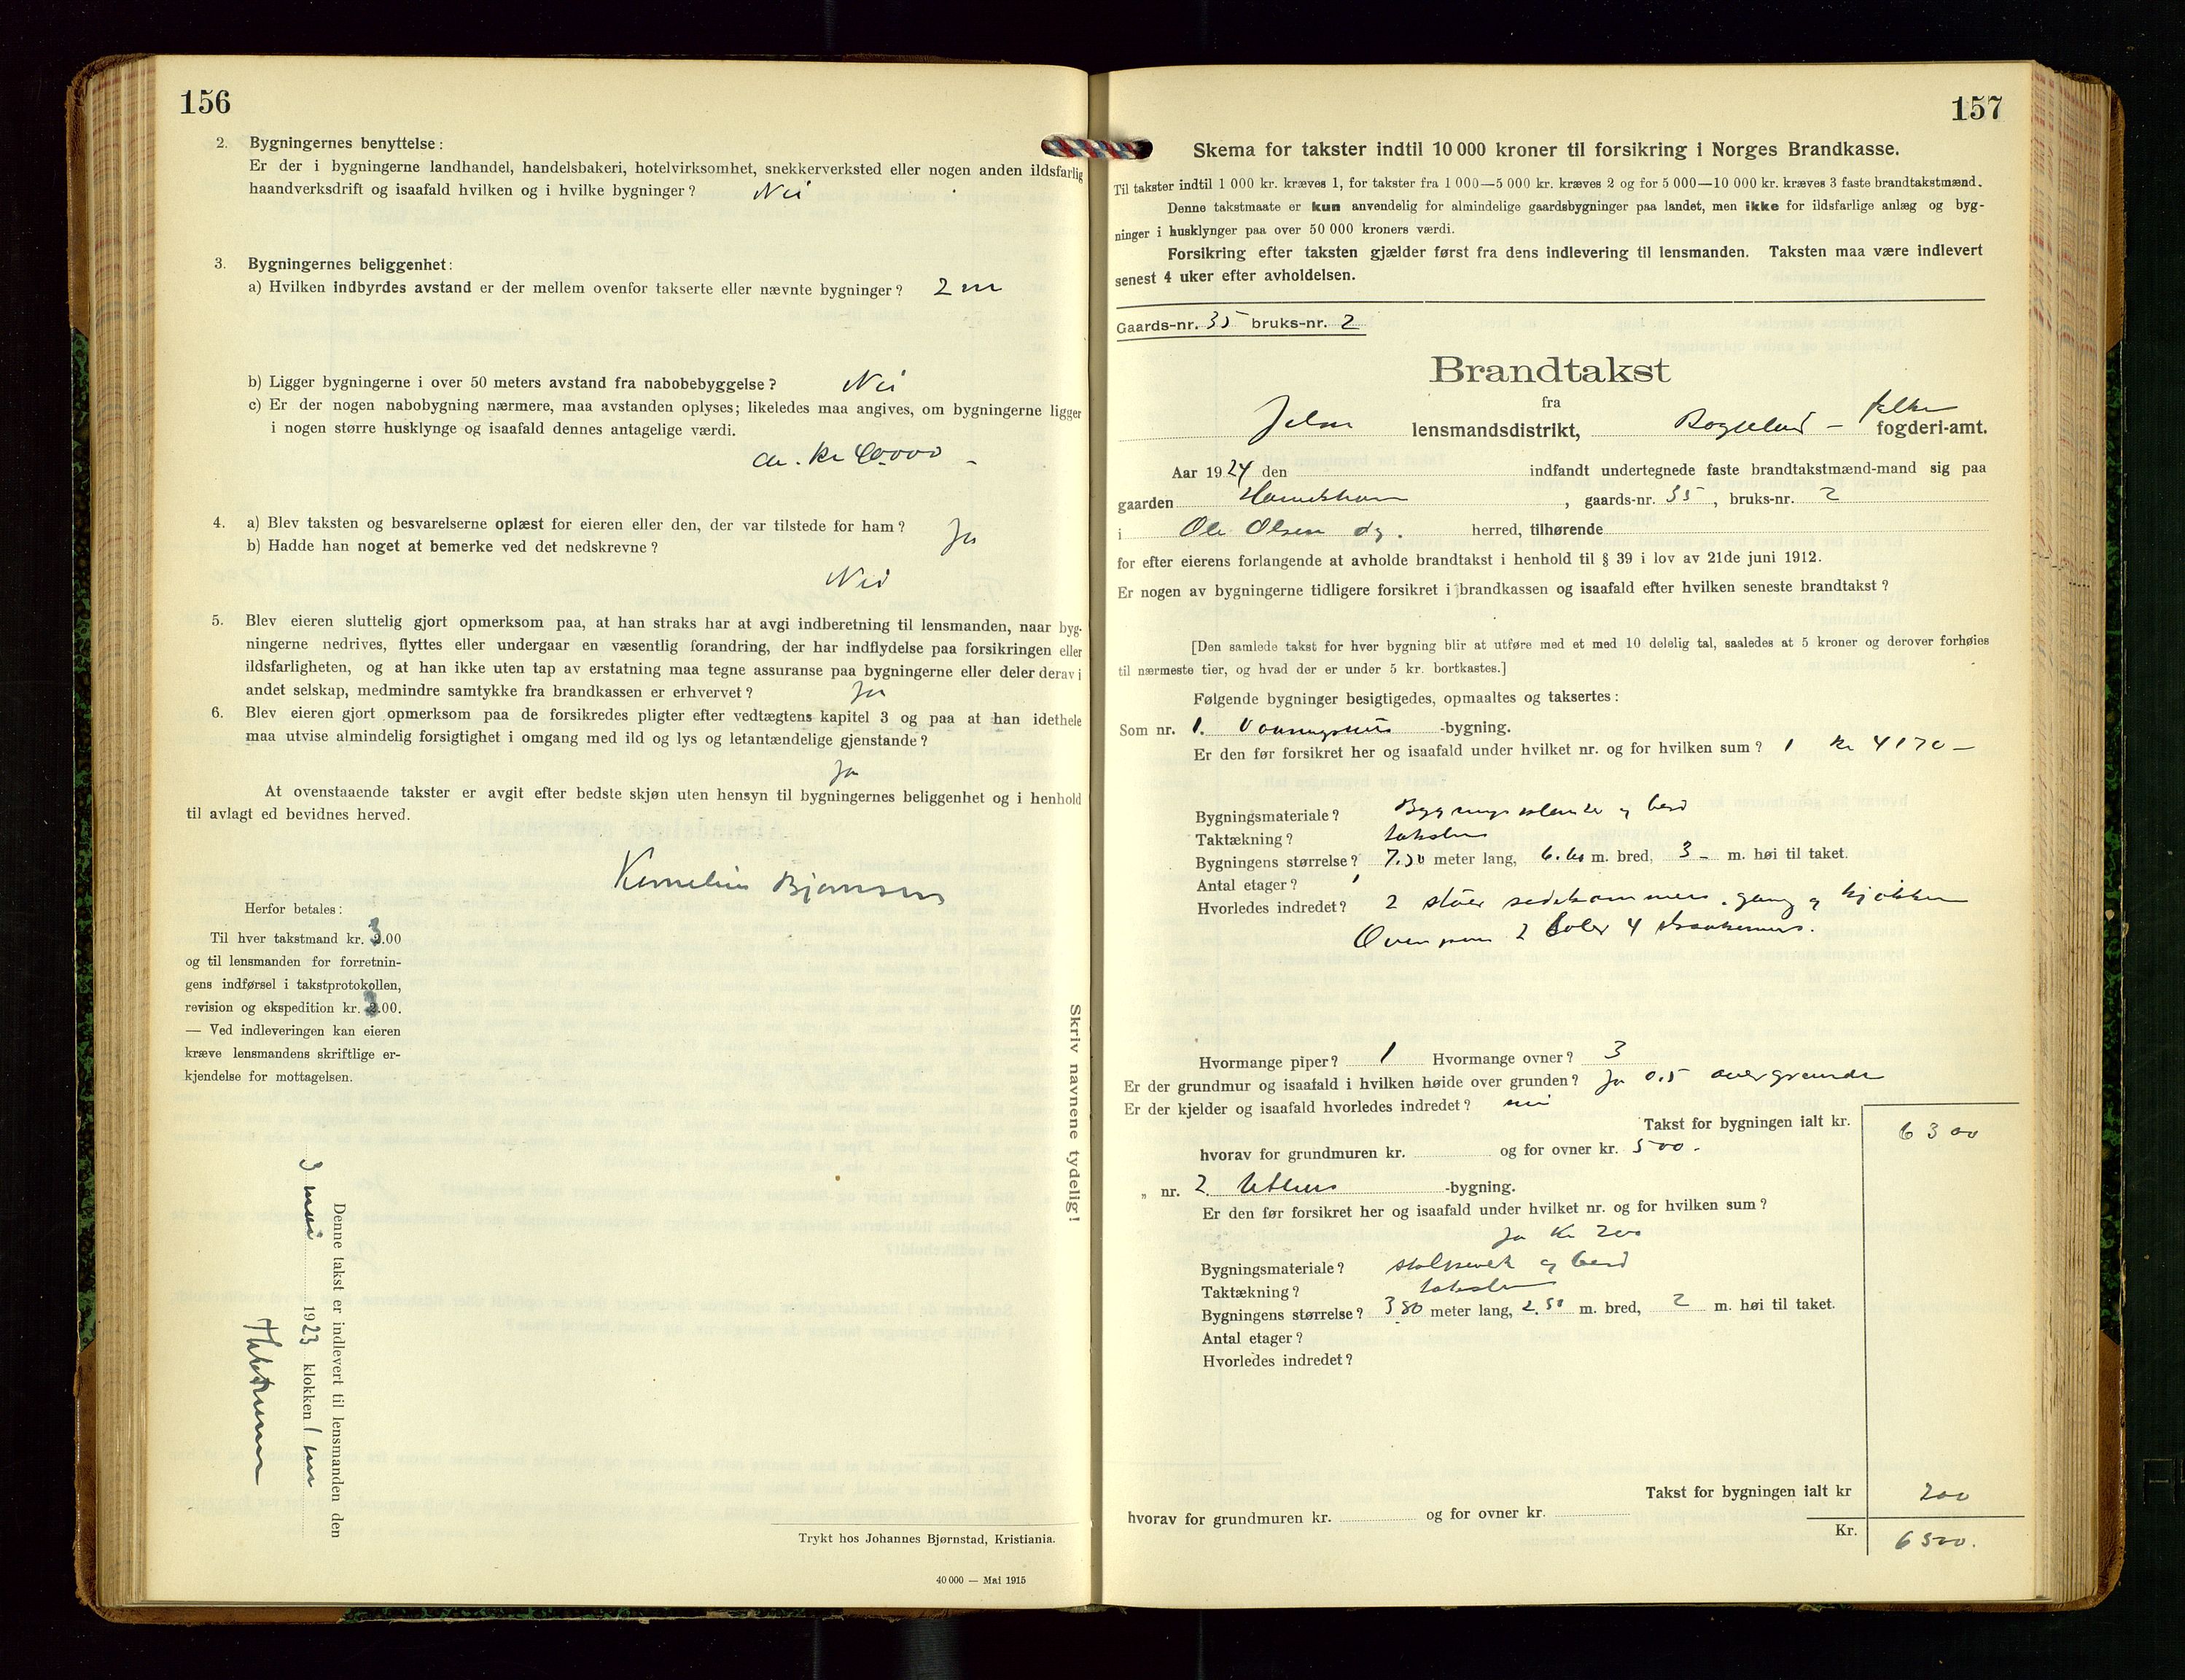 156
2. Bygningernes benyttelse:
Er der i bygningerne landhandel, handelsbakeri, hotelvirksomhet, snekkerverksted eller nogen anden ildsfarlig
haandverksdrift og isaafald hvilken og i hvilke bygninger? Nei
3. Bygningernes beliggenhet:
a) Hvilken indbyrdes avstand er der mellem ovenfor takserte eller nævnte bygninger? 2 m
b) Ligger bygningerne i over 50 meters avstand fra nabobebyggelse? Nei
c) Er der nogen nabobygning nærmere, maa avstanden oplyses; likeledes maa angives, om bygningerne ligger
i nogen større husklynge og isaafald dennes antagelige værdi.
ca. kr 40000 -
4. a) Blev taksten og besvarelserne oplæst for eieren eller den, der var tilstede for ham? Ja
b) Hadde han noget at bemerke ved det nedskrevne?
Nei
5. Blev eieren sluttelig gjort opmerksom paa, at han straks har at avgi indberetning til lensmanden, naar byg-
ningerne nedrives, flyttes eller undergaar en væsentlig forandring, der har indflydelse paa forsikringen eller
ildsfarligheten, og at han ikke uten tap av erstatning maa tegne assuranse paa bygningerne eller deler derav i
andet selskap, medmindre samtykke fra brandkassen er erhvervet? Ja
6. Blev eieren gjort opmerksom paa de forsikredes pligter efter vedtægtens kapitel 3 og paa at han idethele
maa utvise almindelig forsigtighet i omgang med ild og lys og letantændelige gjenstande?
Ja
At ovenstaaende takster er avgit efter bedste skjøn uten hensyn til bygningernes beliggenhet og i henhold
til avlagt ed bevidnes herved.
Kornelius Bjørnsen
Herfor betales:
Til hver takstmand kr. 3.00
og til lensmanden for forretnin-
gens indførsel i takstprotokollen,
revision og ekspedition kr. 3.00.
— Ved indleveringen kan eieren
kræve lensmandens skriftlige er-
kjendelse for mottagelsen.
Skriv navnene tydelig!
Denne takst er indlevert til lensmanden den
3 mai 1923 klokken 1 em
Trykt hos Johannes Bjørnstad, Kristiania.
40 000 — Mai 1915
157
Skema for takster indtil 10 000 kroner til forsikring i Norges Brandkasse.
Til takster indtil 1 000 kr. kræves 1, for takster fra 1 000—5 000 kr. kræves 2 og for 5 000—10 000 kr. kræves 3 faste brandtakstmænd.
Denne takstmaate er kun anvendelig for almindelige gaardsbygninger paa landet, men ikke for ildsfarlige anlæg og byg-
ninger i husklynger paa over 50 000 kroners værdi.
Forsikring efter taksten gjælder først fra dens indlevering til lensmanden. Taksten maa være indlevert
senest 4 uker efter avholdelsen.
Gaards-nr. 35 bruks-nr. 2
Brandtakst
fra
Jelsa lensmandsdistrikt, Rogaland - fylke fogderi-amt.
Aar 1924 den indfandt undertegnede faste brandtakstmænd-mand sig paa
gaarden , gaards-nr. 35, bruks-nr. 2
i Ole Olsen dy. herred, tilhørende
for efter eierens forlangende at avholde brandtakst i henhold til § 39 i lov av 21de juni 1912.
Er nogen av bygningerne tidligere forsikret i brandkassen og isaafald efter hvilken seneste brandtakst?
[Den samlede takst for hver bygning blir at utføre med et med 10 delelig tal, saaledes at 5 kroner og derover forhøies
til nærmeste tier, og hvad der er under 5 kr. bortkastes.]
Følgende bygninger besigtigedes, opmaaltes og taksertes:
Som nr. 1. Vaaningshus -bygning.
Er den før forsikret her og isaafald under hvilket nr. og for hvilken sum? 1 kr 4170 -
Bygningsmateriale? Bygningsplanke og bord
Taktækning? taksten
Bygningens størrelse? 7.50 meter lang, 6.60 m. bred, 3 - m. høi til taket.
Antal etager? 1
Hvorledes indredet? 2 stuer sidekammers. gang og kjøkken
Ovenpaa 2 4
Hvormange piper? 1 Hvormange ovner? 3
Er der grundmur og isaafald i hvilken høide over grunden? Ja 0.5 over grunden
Er der kjelder og isaafald hvorledes indredet? nei
Takst for bygningen ialt kr. 6300
hvorav for grundmuren kr. og for ovner kr. 500.
„ nr. 2. Uthus -bygning.
Er den før forsikret her og isaafald under hvilket nr. og for hvilken sum?
Ja Kr 200
Bygningsmateriale? stolpeverk og bord
Taktækning? taksten
Bygningens størrelse? 3 80 meter lang, 2.50 m. bred, 2 m. høi til taket.
Antal etager?
Hvorledes indredet?
Takst for bygningen ialt kr 200
hvorav for grundmuren kr. og for ovner kr.
Kr. 6500.